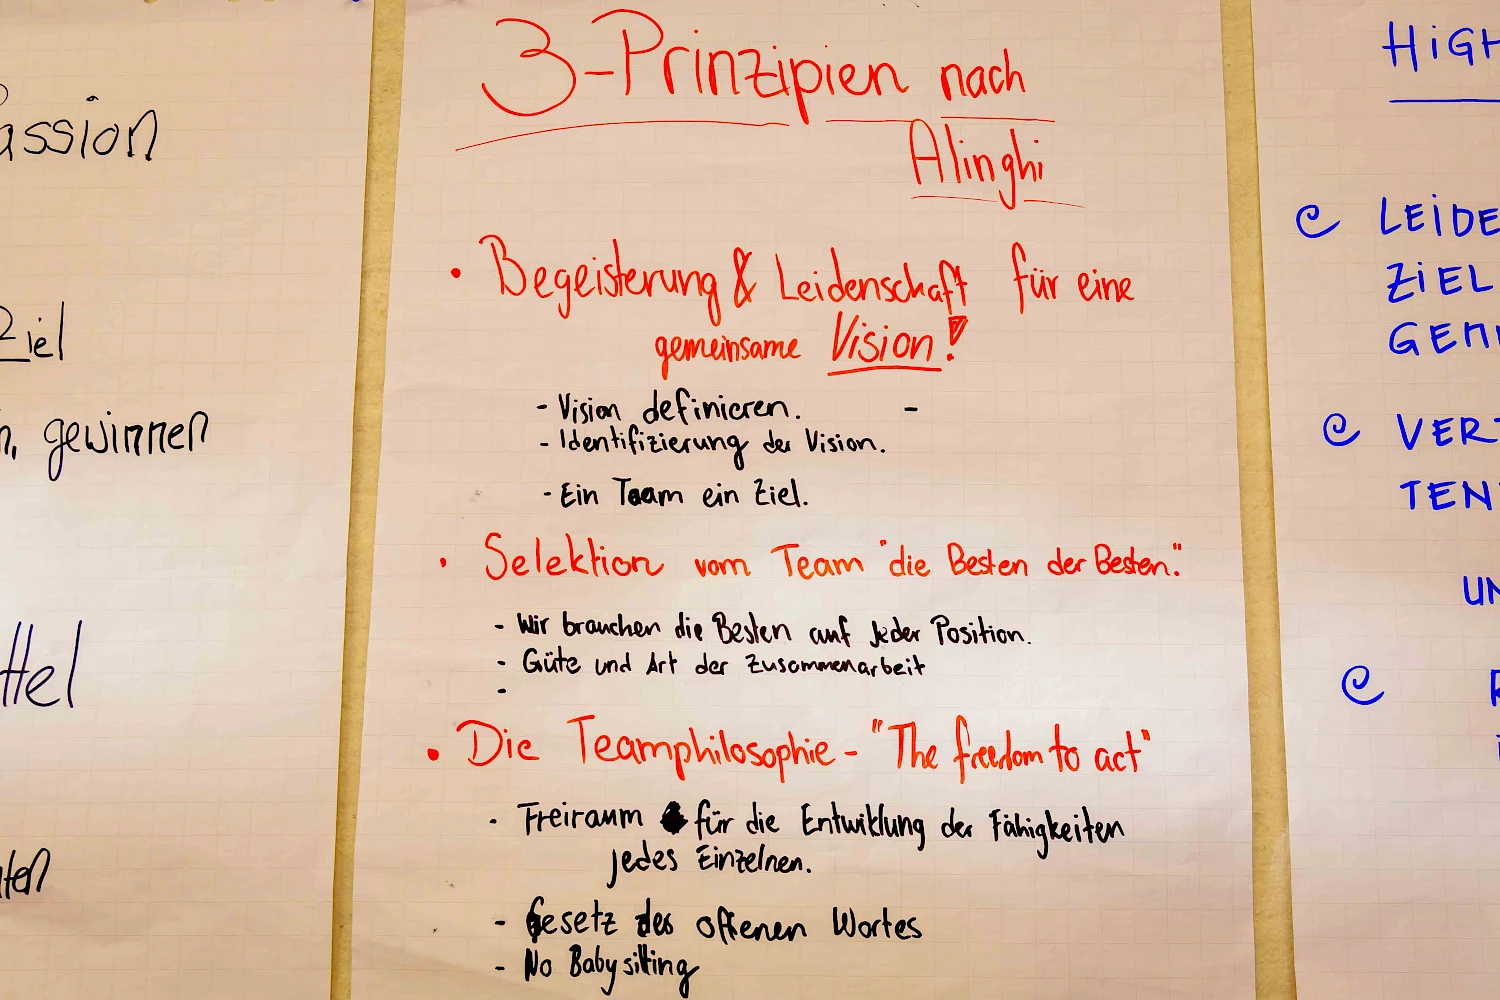 3-Prinzipien nach
Alinghi
• Begeisterung & Leidenschaft für eine
gemeinsame Vision!
- Vision definieren. -
- Identifizierung der Vision.
- Ein Team ein Ziel.
• Selektion vom Team "die Besten der Besten."
- Wir brauchen die Besten auf Jeder Position.
- Güte und Art der Zusammenarbeit
-
• Die Teamphilosophie - "The freedom to act"
- Freiraum für die Entwiklung der Fähigkeiten
jedes Einzelnen.
- Gesetz des offenen Wortes
- No Babysitting
assion
Ziel
n, gewinnen
ttel
ten
HiGH
LEiDE
ZiEL
GEM
VER
TEN
UN
R